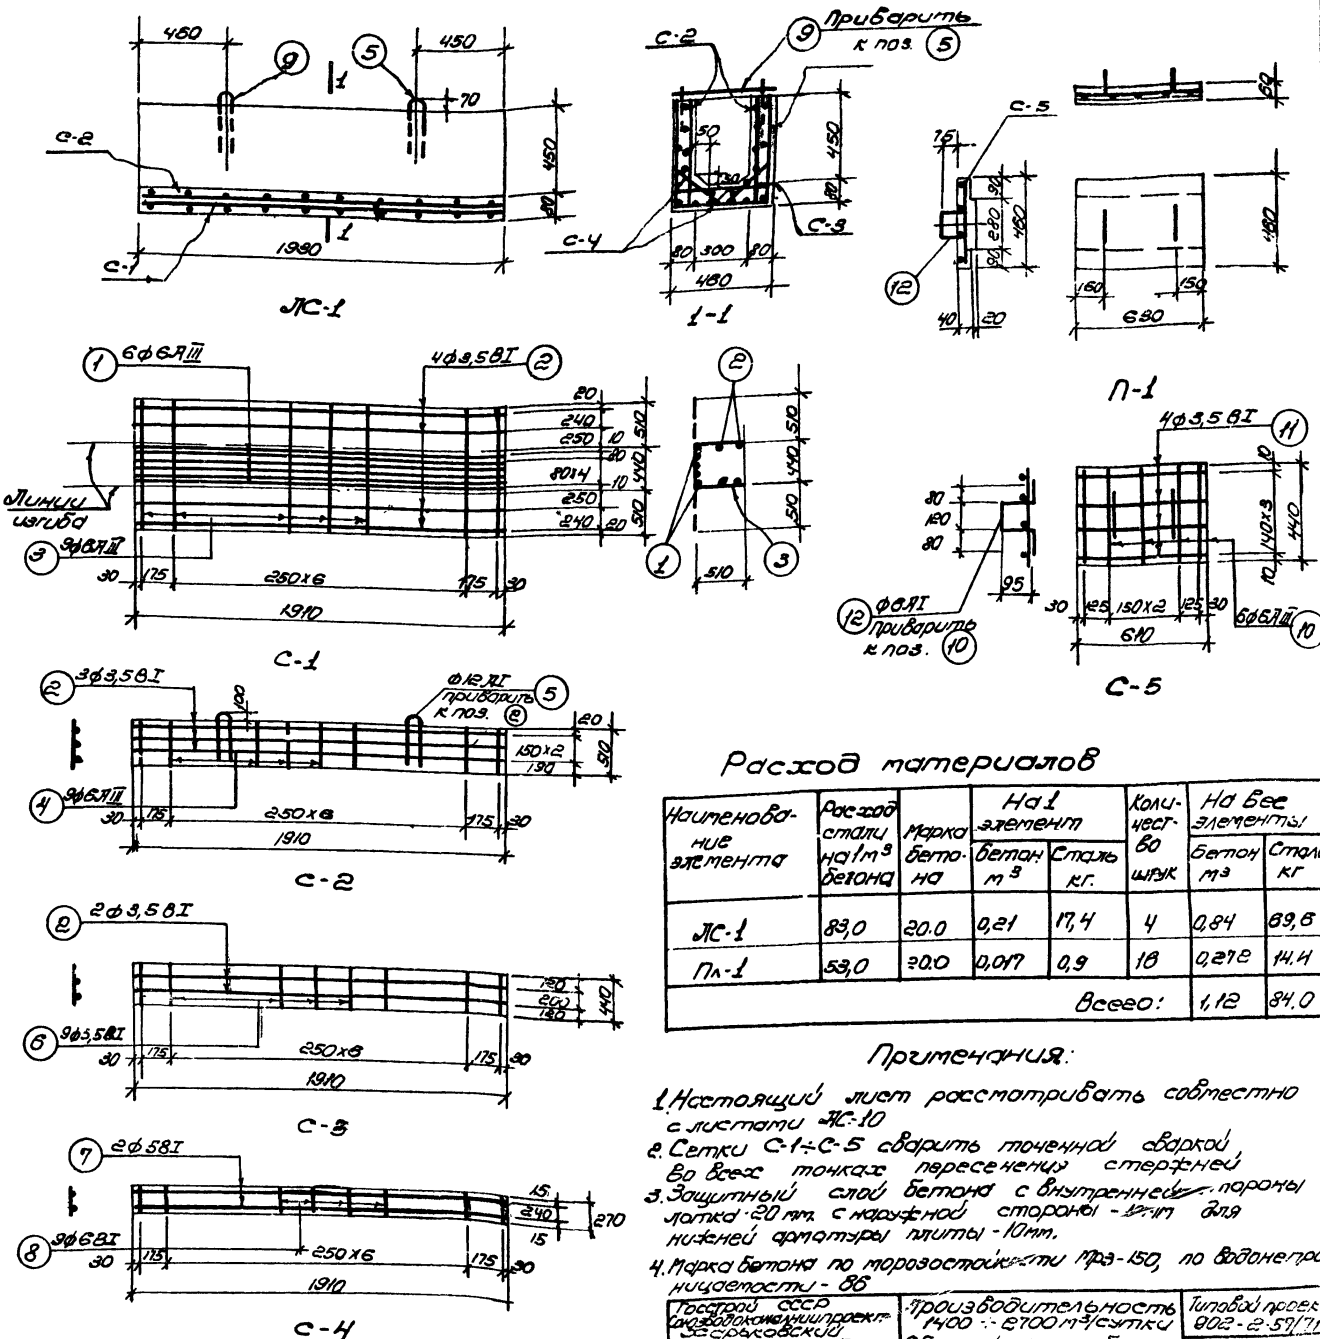 460
9
5
450
1
70
С-2
450
80
1
1980
С-1
ЛС-1
С-2
9
Приварить
к поз. 5
50
450
80
С-4
С-3
80 300 80
460
1-1
60
С-5
75
90
280
460
90
12
40
20
480
160
150
690
П-1
1
6φ6АIII
4φ3,5ВI
2
20
240
250
10
80
80х4
10
250
240
20
510
440
510
Линии
изгиба
3
9φ6АIII
30
175
250х6
175
30
1910
С-1
2
510
440
510
1
3
510
4φ3,5ВI
11
80
120
80
95
12
φ6АI
Приварить
к поз. 10
10
140х3
10
440
30
125
150х2
125
30
6φ6АIII
10
610
С-5
2
3φ3,5ВI
100
φ12АI
приварить
к поз. 2
5
20
150х2
190
510
4
9φ6АIII
30
175
250х6
175
30
1910
С-2
2
2φ3,5ВI
120
200
120
440
6
9φ3,5ВI
30
175
250х6
175
30
1910
С-3
7
2φ5ВI
15
240
15
270
8
9φ6ВI
30
175
250х6
175
30
1910
С-4
Расход материалов
Наименова-
ние
элемента
Расход
стали
на 1м³
бетона
Марка
бето-
на
На 1
элемент
Бетон
м³
Сталь
кг.
Коли-
чест-
во
штук
На все
элементы
Бетон
м³
Сталь
кг
ЛС-1 83,0 200 0,21 17,4 4 0,84 69,6
Пл-1 53,0 200 0,017 0,9 16 0,272 14.4
Всего: 1,12 84.0
Примечания:
1. Настоящий лист рассматривать совместно
с листами ЛС-10
2. Сетки С-1÷С-5 сварить точечной сваркой,
во всех точках пересечения стержней
3. Защитный слой бетона с внутренней стороны
лотка -20 мм. с наружной стороны - для
нижней арматуры плиты -10мм.
4. Марка бетона по морозостойкости Мрз-150, по водонепро
ницаемости - В6
Госстрой СССР
Союзводоканалниипроект
Харьковский
Производительность
1400 ÷ 2700 м³/сутки
Типовой проек
902-2-57/71